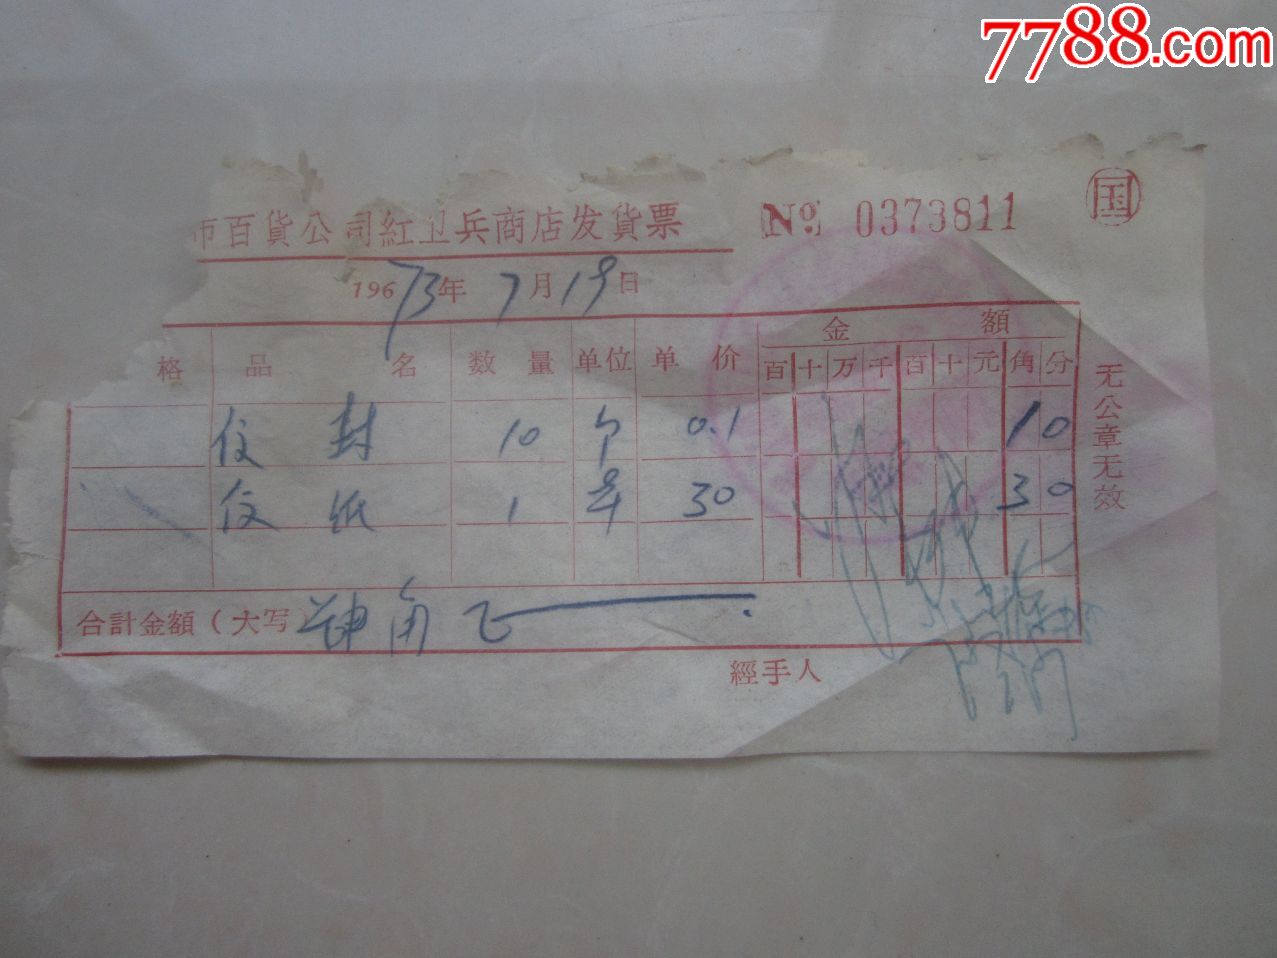 7788.com
国
市百貨公司紅卫兵商店发貨票 No 0373811
196 73年 7月19日
金 額
格 品 名 数 量 单位 单 价 百 十 万 千 百 十 元 角 分
封 10 个 0.1 1 0
纸 1 30 3 0
合計金額(大写) 肆角
經手人
无公章无效